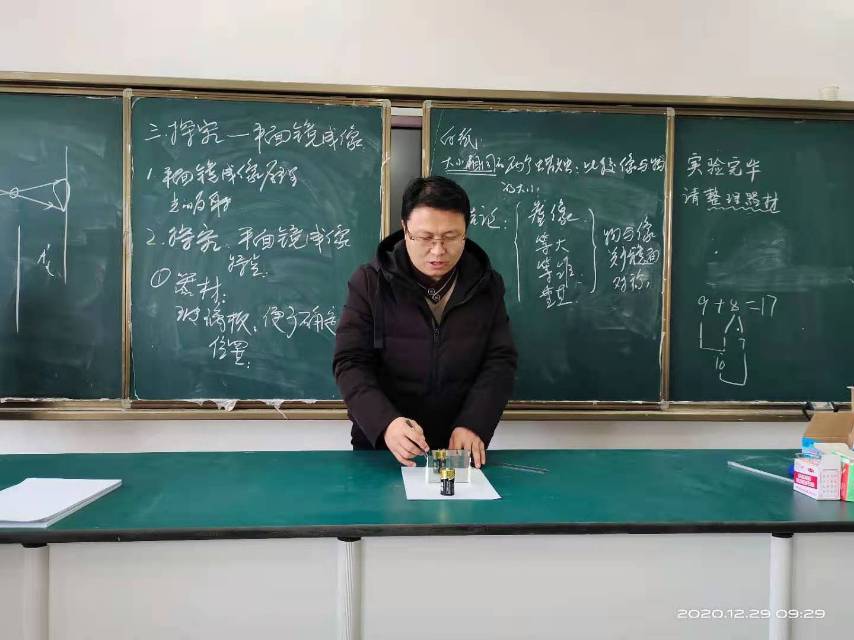 三.探究—平面镜成像
1.平面镜成像原理
光的反射
2.探究:平面镜成像
特点
①器材:
玻璃板:便于确定
位置:
白纸
大小相同的两个蜡烛:比较像与物
的大小
结论:
虚像
等大
等距
垂直
物与像
关于镜面
对称
实验完毕
请整理器材
9+8=17
1 7
10
2020.12.29 09:29